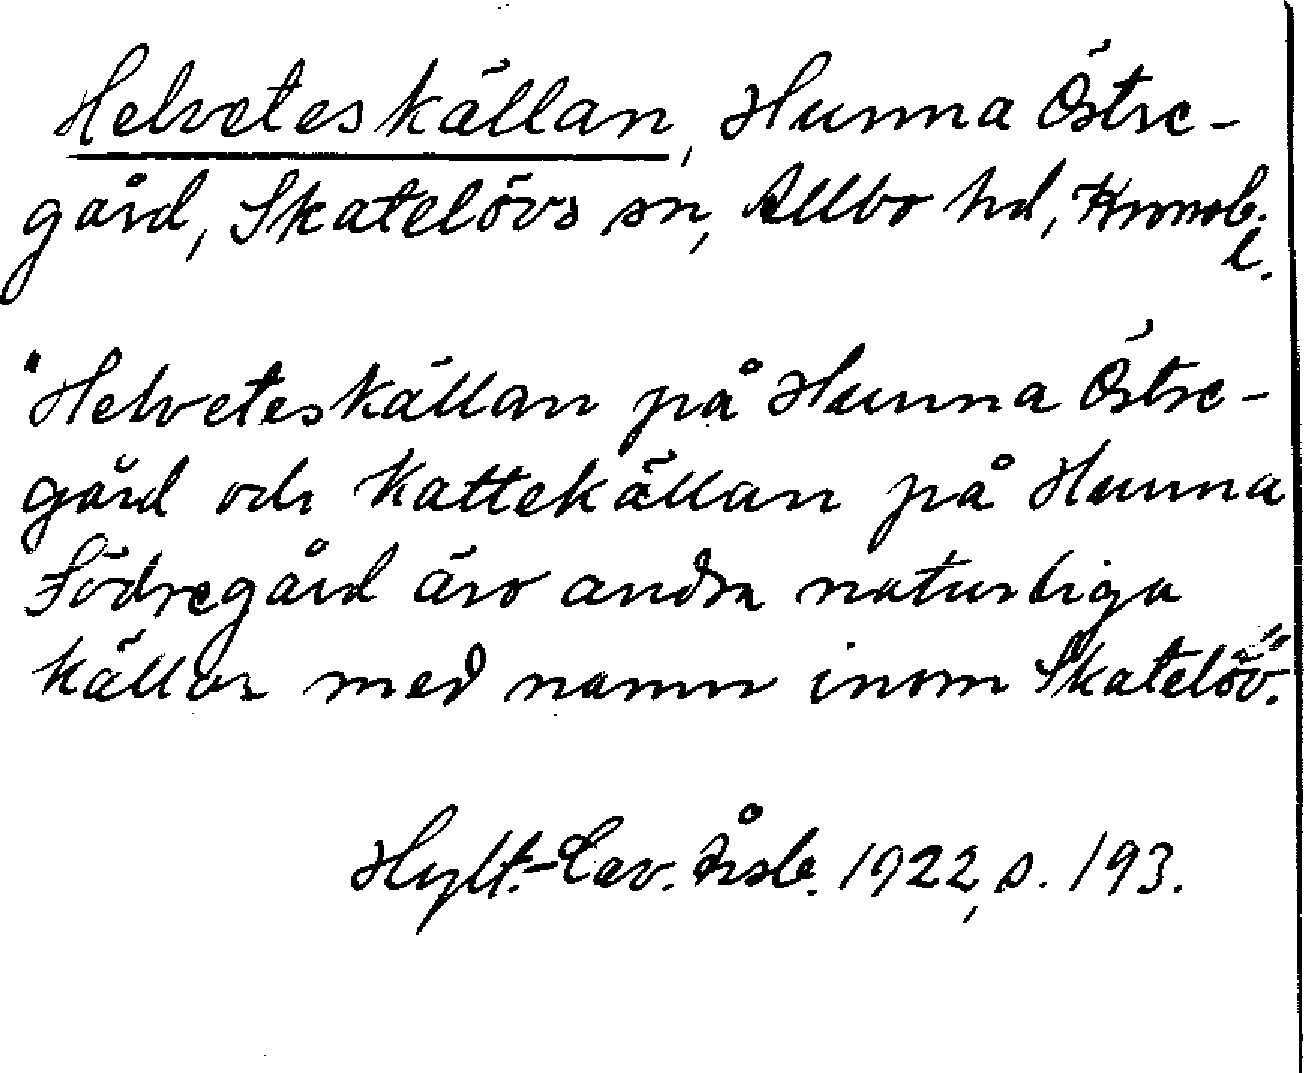 Helveteskällan, Hunna Östre-
gård, Skatelövs sn, Allbo hd, Kronob.
l.
"Helveteskällan på Hunna Östre-
gård och Kattekällan på Hunna
Södregård äro andra naturliga
källor med namn inom Skatelöv."
Hylt.-Cav. Årsb. 1922, s. 193.